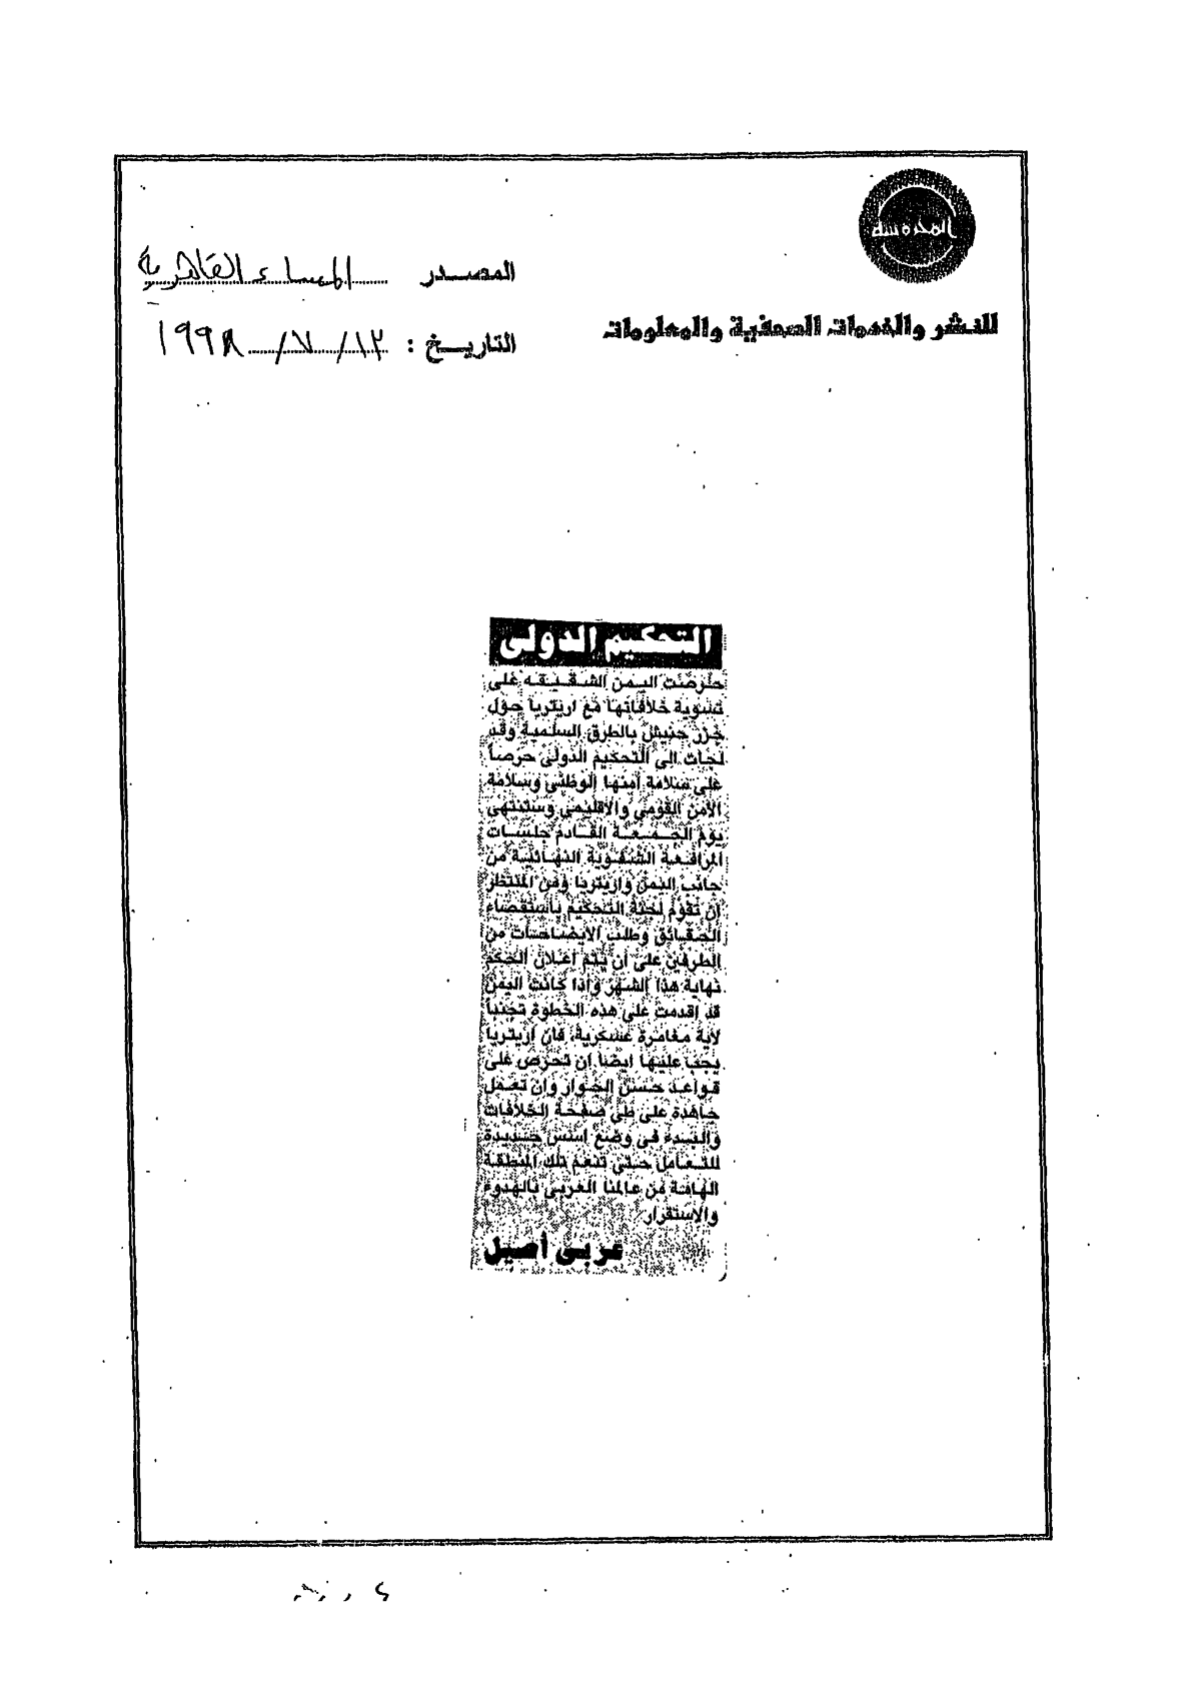 المحروسة
للنشر والخدمات الصحفية والمعلومات
المصدر المساء القاهرية
التاريخ : ١٢ / ٧ / ١٩٩٨
التحكيم الدولى
حرصت اليمن الشقيقه على
تسوية خلافاتها مع اريتريا حول
جزر حنيش بالطرق السلمية وقد
لجات الى التحكيم الدولى حرصا
على سلامة أمنها الوطنى وسلامة
الأمن القومى والاقليمى وستنتهى
يوم الجمعة القادم جلسات
المرافعة الشفوية النهائية من
جانب اليمن واريتريا ومن المنتظر
ان تقوم لجنة التحكيم باستقصاء
الحقائق وطلب الايضاحات من
الطرفين على أن يتم اعلان الحكم
نهاية هذا الشهر واذا كانت اليمن
قد اقدمت على هذه الخطوة تجنبا
لأية مغامرة عسكرية، فان اريتريا
يجب عليها ايضا ان تحرص على
قواعد حسن الجوار وان تعمل
جاهدة على طى صفحة الخلافات
والبدء فى وضع اسس جديدة
للتعامل حتى تنعم تلك المنطقة
الهامة من عالمنا العربى بالهدوء
والاستقرار
عربى أصيل